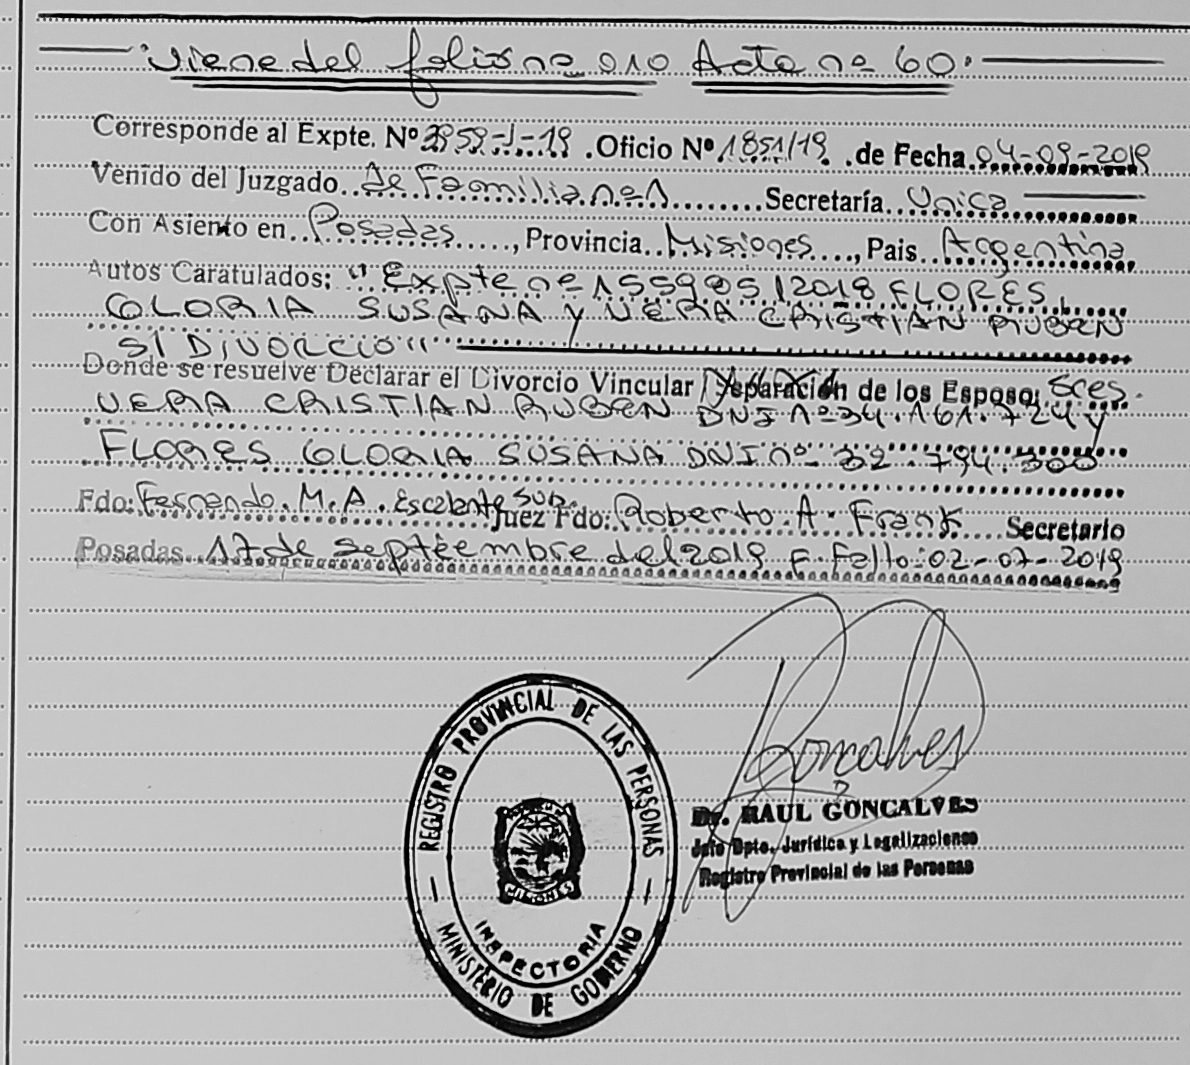 Viene del folio nº 010 Acta nº 60.
Corresponde al Expte. Nº 3959-J-19 .Oficio Nº 1851/19 .de Fecha 04-09-2019
Venido del Juzgado de Familia nº 1 Secretaría Unica
Con Asiento en Posadas, Provincia Misiones, Pais Argentina
Autos Caratulados: "Expte nº 155905/2018 FLORES,
GLORIA SUSANA Y VERA CRISTIAN RUBEN
S/ DIVORCIO"
Donde se resuelve Declarar el Divorcio Vincular / Separación de los Esposo: Sres.
VERA CRISTIAN RUBEN DNI nº 34.161.724 y
FLORES GLORIA SUSANA DNI nº 32.794.300
Fdo: Fernando. M. A. Escalante Sub. Juez Fdo: Roberto. A. Frank Secretario
Posadas 17 de septiembre del 2019 F. Fallo: 02-07-2019
REGISTRO PROVINCIAL DE LAS PERSONAS
MISIONES
INSPECTORIA
MINISTERIO DE GOBIERNO
Goncalves
Dr. RAUL GONCALVES
Jefe Dpto. Jurídica y Legalizaciones
Registro Provincial de las Personas